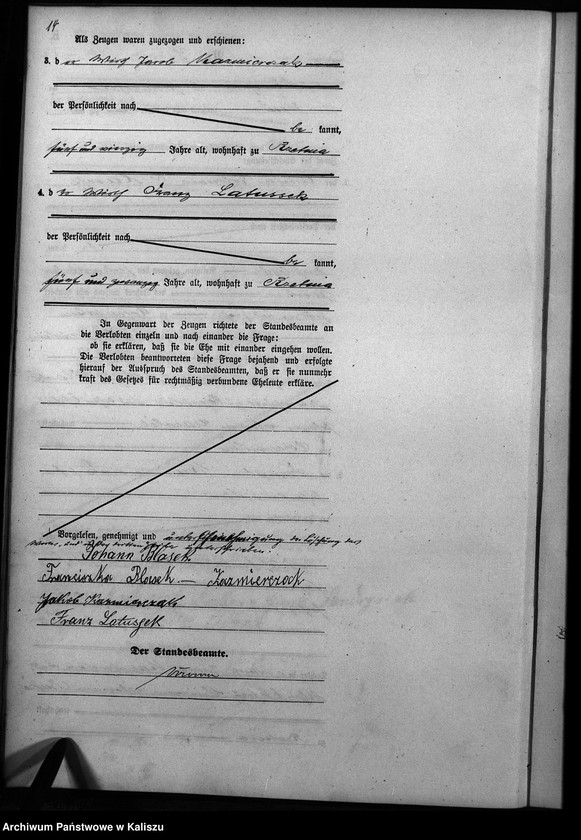 14
Als Zeugen waren zugezogen und erschienen:
3. der Wirth Jacob Kazmierczak
der Persönlichkeit nach
be kannt,
fünf und vierzig Jahre alt, wohnhaft zu Rzetnia
4. der Wirth Franz Latussek
der Persönlichkeit nach
be kannt,
fünf und zwanzig Jahre alt, wohnhaft zu Rzetnia
In Gegenwart der Zeugen richtete der Standesbeamte an
die Verlobten einzeln und nach einander die Frage:
ob sie erklären, daß sie die Ehe mit einander eingehen wollen.
Die Verlobten beantworteten diese Frage bejahend und erfolgte
hierauf der Ausspruch des Standesbeamten, daß er sie nunmehr
kraft des Gesetzes für rechtmäßig verbundene Eheleute erkläre.
Vorgelesen, genehmigt und unter Genehmigung der Löschung des
unterschrieben.
Johann Blasek
Franciszka Blasek - Kazmierczack
Jakob Kazmierczak
Franz Latussek
Der Standesbeamte.
Archiwum Państwowe w Kaliszu